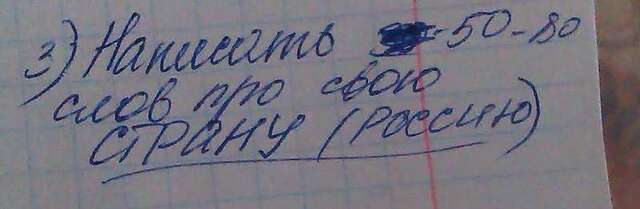 3) Написать 50-80
слов про свою
СТРАНУ (Россию)